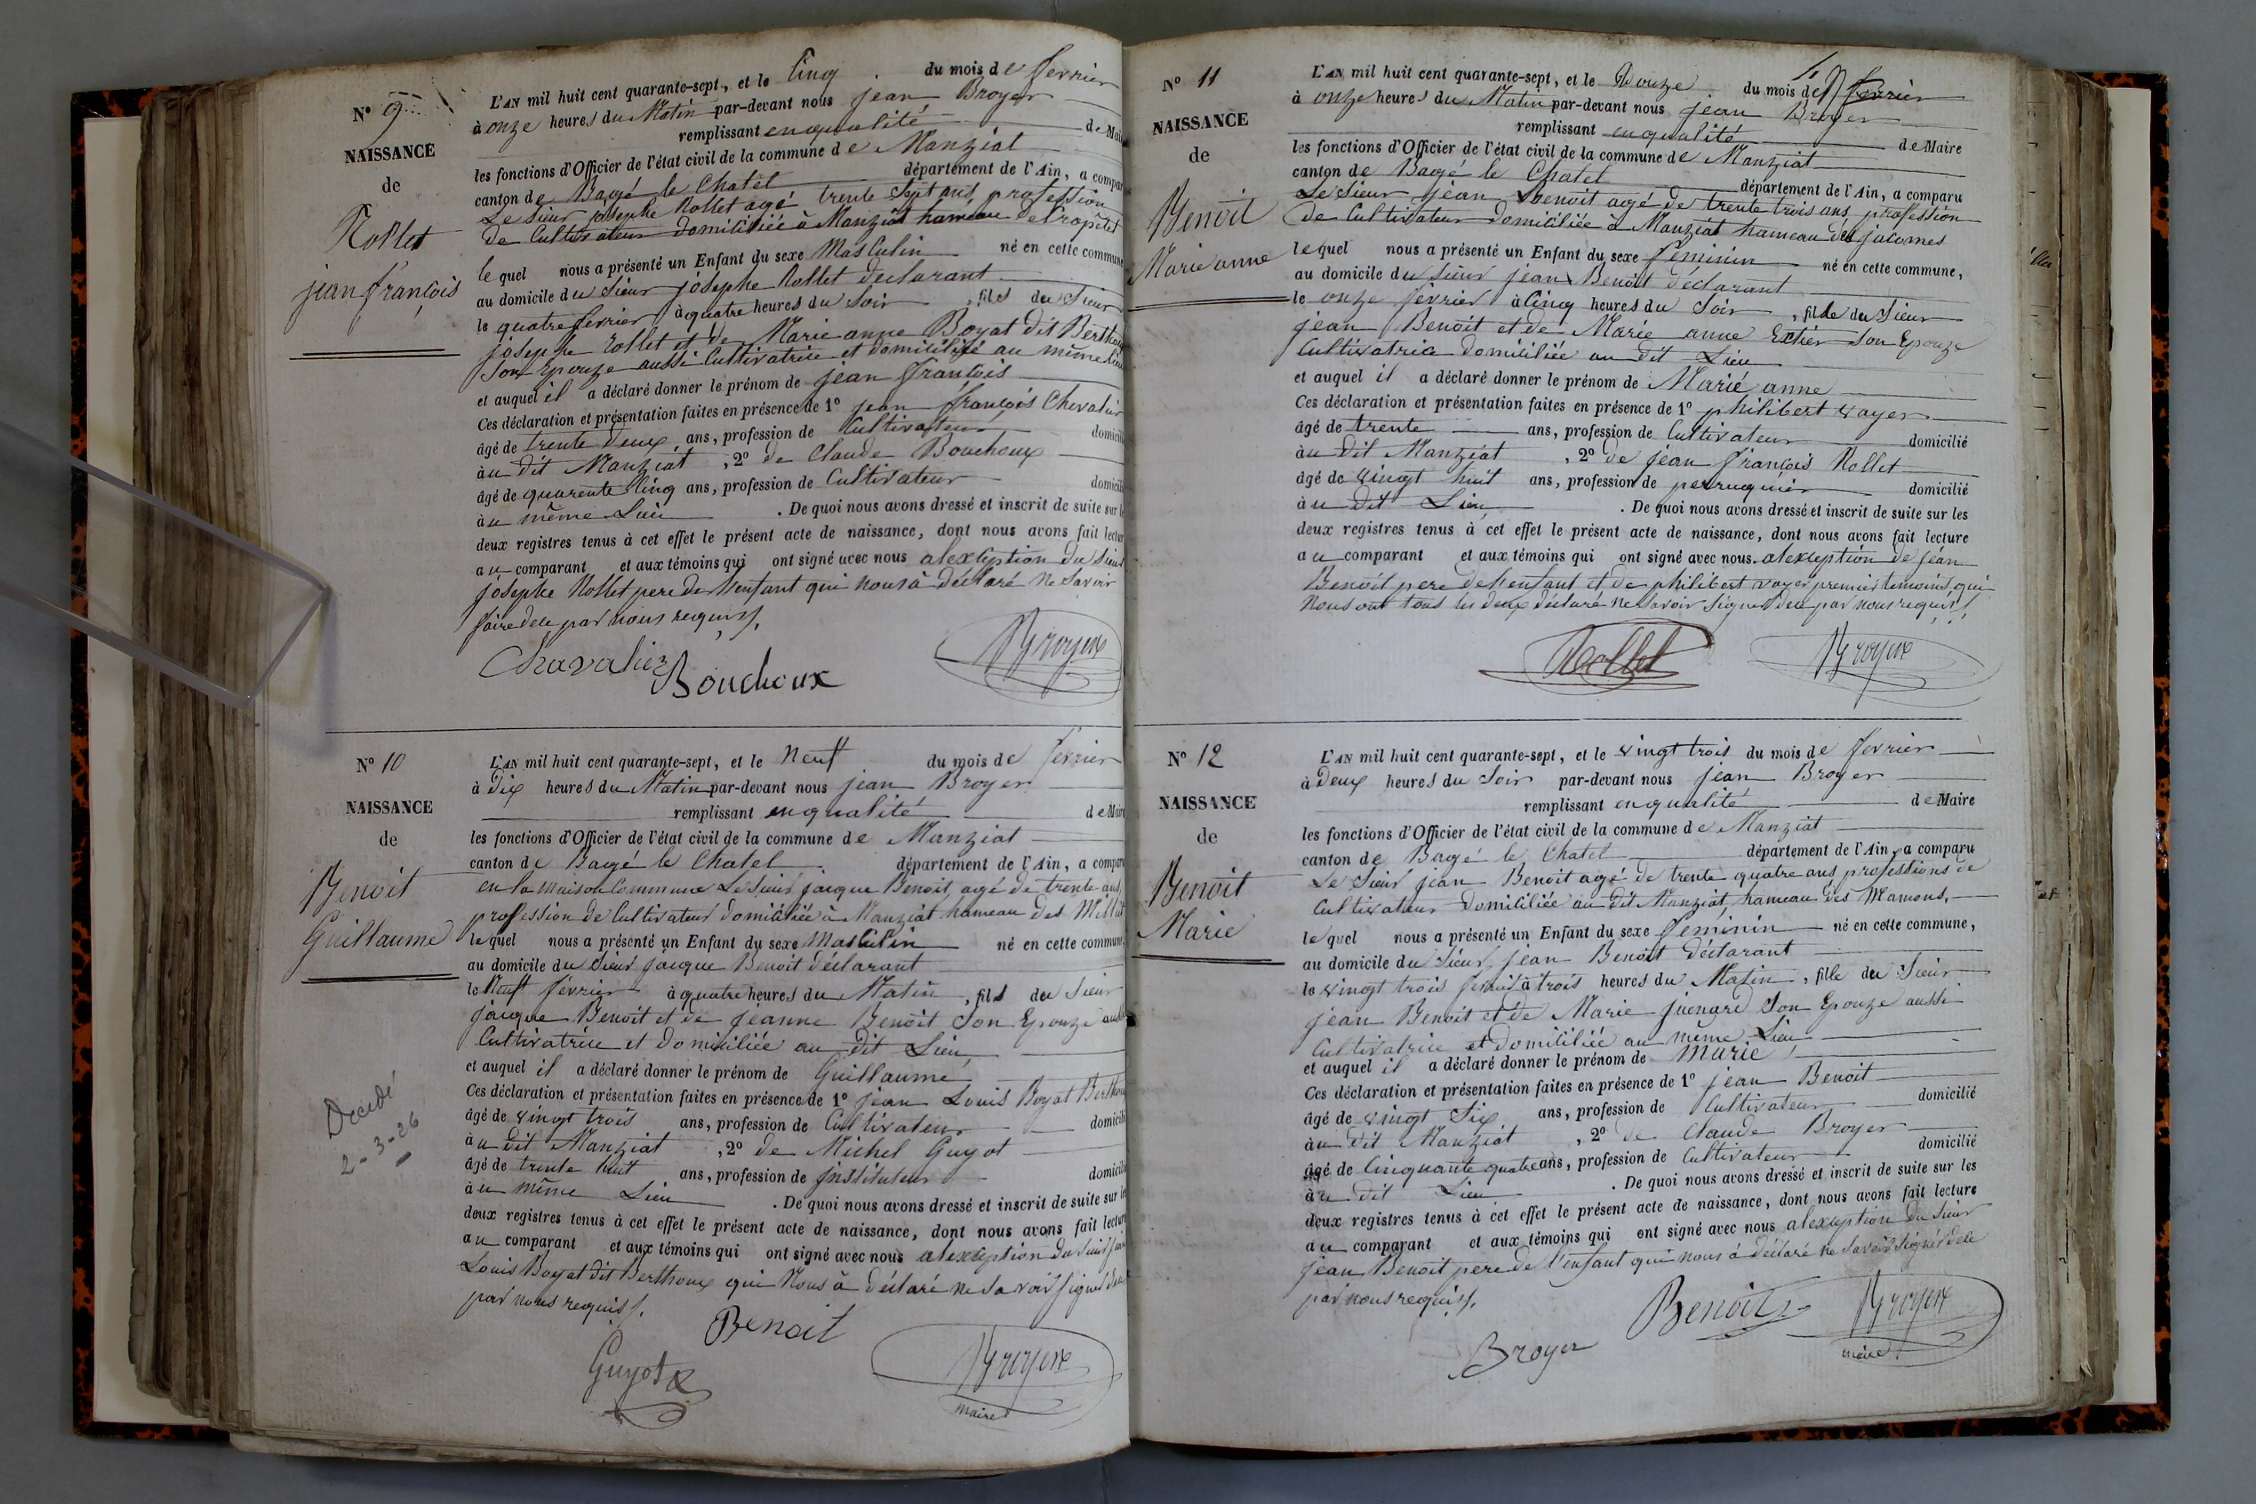 N° 9
NAISSANCE
de
Rollet
jean françois
L'AN mil huit cent quarante-sept, et le Cinq du mois de fevrier
à onze heures du Matin par-devant nous jean Broyer
remplissant en qualité de Mai
les fonctions d'Officier de l'état civil de la commune de Manziat
canton de Bagé le Chatel département de l'Ain, a compar
Le Sieur josephe Rollet agé trente Sept ans profession
de Cultivateur domicilliée à Manziat hameau de
le quel nous a présenté un Enfant du sexe Masculin né en cette commune
au domicile du Sieur josephe Rollet declarant
le quatre fevrier à quatre heures du Soir, fils du Sieur
josephe Rollet et de Marie anne Boyat dit Berthoux
Son Epouze aussi Cultivatrice et domicilié au même Lieu
et auquel il a déclaré donner le prénom de jean francois
Ces déclaration et présentation faites en présence de 1° jean françois Chevalier
âgé de trente deux ans, profession de Cultivateur domicili
àu dit Manziat, 2° de Claude Bouchoux
âgé de quarente Cinq ans, profession de Cultivateur domicili
àu même Lieu. De quoi nous avons dressé et inscrit de suite sur le
deux registres tenus à cet effet le présent acte de naissance, dont nous avons fait lectur
au comparant et aux témoins qui ont signé avec nous alexeption du Sieur
josephe Rollet pere de l'enfant qui nous à déclaré ne Savoir
faire dele par nous requis.
Chavalier
Bouchoux
Broyer
N° 10
NAISSANCE
de
Benoit
Guillaume
Decédé
2-3-26
L'AN mil huit cent quarante-sept, et le Neuf du mois de fevrier
à Dix heures du Matin par-devant nous jean Broyer
remplissant en qualité de Mair
les fonctions d'Officier de l'état civil de la commune de Manziat
canton de Bagé le Chatel département de l'Ain, a compar
en la maison Commune Le Sieur jacque Benoit, agé de trente ans,
profession de Cultivateur domicilliée à Manziat hameau des
le quel nous a présenté un Enfant du sexe Masculin né en cette commune
au domicile du Sieur jacque Benoit déclarant
le Neuf fevrier à quatre heures du Matin, fils du Sieur
jacque Benoit et de jeanne Benoit Son Epouze aussi
Cultivatrice et domiciliée au dit Lieu
et auquel il a déclaré donner le prénom de Guillaume
Ces déclaration et présentation faites en présence de 1° jean Louis Boyat Berthoux
âgé de vingt trois ans, profession de Cultivateur domicili
àu dit Manziat, 2° de Michel Guyot
âgé de trente huit ans, profession de jnstituteur domicili
àu même Lieu. De quoi nous avons dressé et inscrit de suite sur le
deux registres tenus à cet effet le présent acte de naissance, dont nous avons fait lectur
au comparant et aux témoins qui ont signé avec nous alexeption du Sieur jean
Louis Boyat dit Berthoux qui Nous à déclaré ne Savoir Signer dele
par nous requis.
Benoit
Guyot
Broyer
maire
N° 11
NAISSANCE
de
Benoit
Marie anne
L'AN mil huit cent quarante-sept, et le Douze du mois de fevrier
à onze heures du Matin par-devant nous jean Broyer
remplissant en qualité de Maire
les fonctions d'Officier de l'état civil de la commune de Manziat
canton de Bagé le Chatel département de l'Ain, a comparu
Le Sieur jean Benoit agé de trente trois ans profession
de Cultivateur domiciliée à Manziat hameau des jacomes
le quel nous a présenté un Enfant du sexe feminin né en cette commune,
au domicile du Sieur jean Benoit déclarant
le onze fevrier à Cinq heures du Soir, fille du Sieur
jean Benoit et de Marie anne Son Epouze
Cultivatrice domiciliée au dit Lieu
et auquel il a déclaré donner le prénom de Marie anne
Ces déclaration et présentation faites en présence de 1° philibert vayer
âgé de trente ans, profession de Cultivateur domicilié
àu dit Manziat, 2° de jean françois Rollet
âgé de vingt huit ans, profession de perruquier domicilié
àu dit Lieu. De quoi nous avons dressé et inscrit de suite sur les
deux registres tenus à cet effet le présent acte de naissance, dont nous avons fait lecture
au comparant et aux témoins qui ont signé avec nous alexeption de jean
Benoit pere de l'enfant et de philibert vayer premier temoins qui
Nous ont tous les deux déclaré ne Savoir Signer dele par nous requis.
Rollet
Broyer
N° 12
NAISSANCE
de
Benoit
Marie
L'AN mil huit cent quarante-sept, et le vingt trois du mois de fevrier
à Deux heures du Soir par-devant nous jean Broyer
remplissant en qualité de Maire
les fonctions d'Officier de l'état civil de la commune de Manziat
canton de Bagé le Chatel département de l'Ain, a comparu
Le Sieur jean Benoit agé de trente quatre ans professions de
Cultivateur domiciliée au dit Manziat, hameau des Mamons,
le quel nous a présenté un Enfant du sexe feminin né en cette commune,
au domicile du Sieur jean Benoit déclarant
le vingt trois fevrier à trois heures du Matin, fille du Sieur
jean Benoit et de Marie juenard Son Epouze aussi
Cultivatrice et domiciliée au même Lieu
et auquel il a déclaré donner le prénom de Marie
Ces déclaration et présentation faites en présence de 1° jean Benoit
âgé de vingt Six ans, profession de Cultivateur domicilié
àu dit Manziat, 2° de Claude Broyer
âgé de Cinquante quatre ans, profession de Cultivateur domicilié
àu dit Lieu. De quoi nous avons dressé et inscrit de suite sur les
deux registres tenus à cet effet le présent acte de naissance, dont nous avons fait lecture
au comparant et aux témoins qui ont signé avec nous alexeption du Sieur
jean Benoit pere de l'enfant qui nous à déclaré ne Savoir Signer dele
par nous requis.
Benoit
Broyer
Broyer
maire